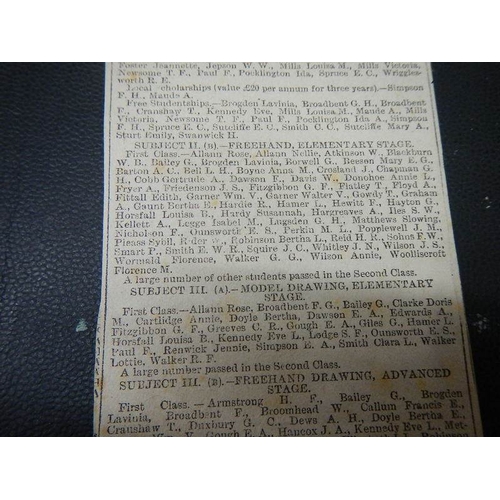 Foster Jeannette, Jepson W. W., Mills Louisa M., Mills Victoria,
Newsome T. F., Paul F., Pocklington Ida, Spruce E. C., Wriggles-
worth R. E.
Local Scholarships (value £20 per annum for three years).—Simpson
F. H., Maude A.
Free Studentships.—Brogden Lavinia, Broadbent G. H., Broadbent
F., Cranshaw T., Kennedy Eve, Mills Louisa M., Maude A., Mills
Victoria, Newsome T. F., Paul F., Pocklington Ida A., Simpson
F. H., Spruce E. C., Sutcliffe E. C., Smith C. C., Sutcliffe Mary A.,
Sturt Emily, Swanwick H.
SUBJECT II. (B).—FREEHAND, ELEMENTARY STAGE.
First Class.—Allann Rose, Allann Nellie, Atkinson W., Blackburn
W. B., Bailey G., Brogden Lavinia, Borwell G., Beeson Mary E. G.,
Barton A. C., Bell L. H., Boyne Anna M., Crosland J., Chapman G.
H., Cobb Gertrude A., Dawson F., Davis W., Donohoe Annie T.,
Fryer A., Friedenson J. S., Fitzgibbon G. F., Flatley T., Floyd A.,
Fittall Edith, Garner Wm. V., Garner Walter V., Gowdy T., Graham
A., Gaunt Bertha E., Hardie R., Hamer L., Hewitt F., Hayton G.,
Horsfall Louisa B., Hardy Susannah, Hargreaves A., Iles S. W.,
Kellett A., Legge Isabel M., Lugsden G. H., Matthews Slowing,
Nicholson F., Ounsworth E. S., Perkin M. L., Popplewell J. M.,
Pleass Sybil, Rider W., Robinson Bertha L., Reid H. R., Sohn F. W.,
Smart F., Smith E. W. R., Squire J. C., Whitley J. N., Wilson J. S.,
Wormald Florence, Walker G. G., Wilson Annie, Woolliscroft
Florence M.
A large number of other students passed in the Second Class.
SUBJECT III. (A).—MODEL DRAWING, ELEMENTARY
STAGE.
First Class.—Allann Rose, Broadbent F. G., Bailey G., Clarke Doris
M., Cartlidge Annie, Doyle Bertha, Dawson E. A., Edwards A.,
Fitzgibbon G. F., Greeves C. R., Gough E. A., Giles G., Hamer L.,
Horsfall Louisa B., Kennedy Eve L., Lodge S. F., Ounsworth E. S.,
Paul F., Renwick Jennie, Simpson E. A., Smith Clara L., Walker
Lottie, Walker R. F.
A large number passed in the Second Class.
SUBJECT III. (B).—FREEHAND DRAWING, ADVANCED
STAGE.
First Class.—Armstrong H. F., Bailey G., Brogden
Lavinia, Broadbent F., Broomhead W., Callum Francis E.,
Cranshaw T., Duxbury G. C., Dews A. H., Doyle Bertha E.,
Gough E. A., Hancox J. A., Kennedy Eve L., Met-
Robinson